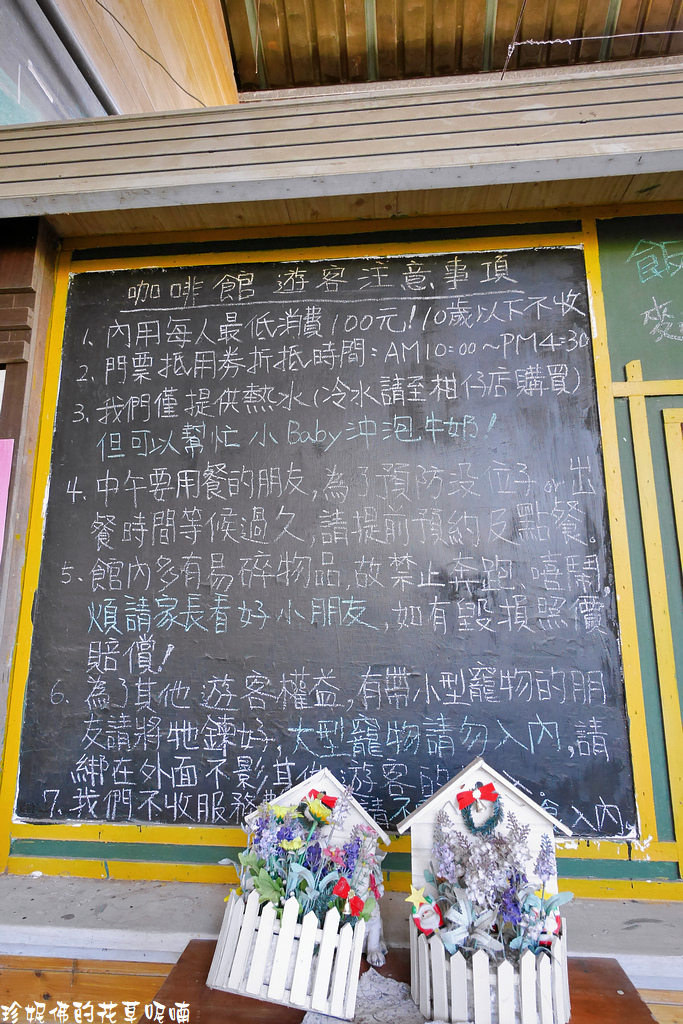 咖啡館 遊客注意事項
1. 內用每人最低消費100元!10歲以下不收
2. 門票抵用券折抵時間:AM10:00~PM4:30
3. 我們僅提供熱水(冷水請至柑仔店購買)
但可以幫忙小Baby沖泡牛奶!
4. 中午要用餐的朋友,為了預防沒位子or出
餐時間等候過久,請提前預約及點餐。
5. 館內多有易碎物品,故禁止奔跑、嘻鬧,
煩請家長看好小朋友,如有毀損照價
賠償!
6. 為了其他遊客權益,有帶小型寵物的朋
友請將牠鍊好,大型寵物請勿入內,請
綁在外面不影其他遊客的
7. 我們不收服務 請不 入內.
飯
麥
珍妮佛的花草呢喃